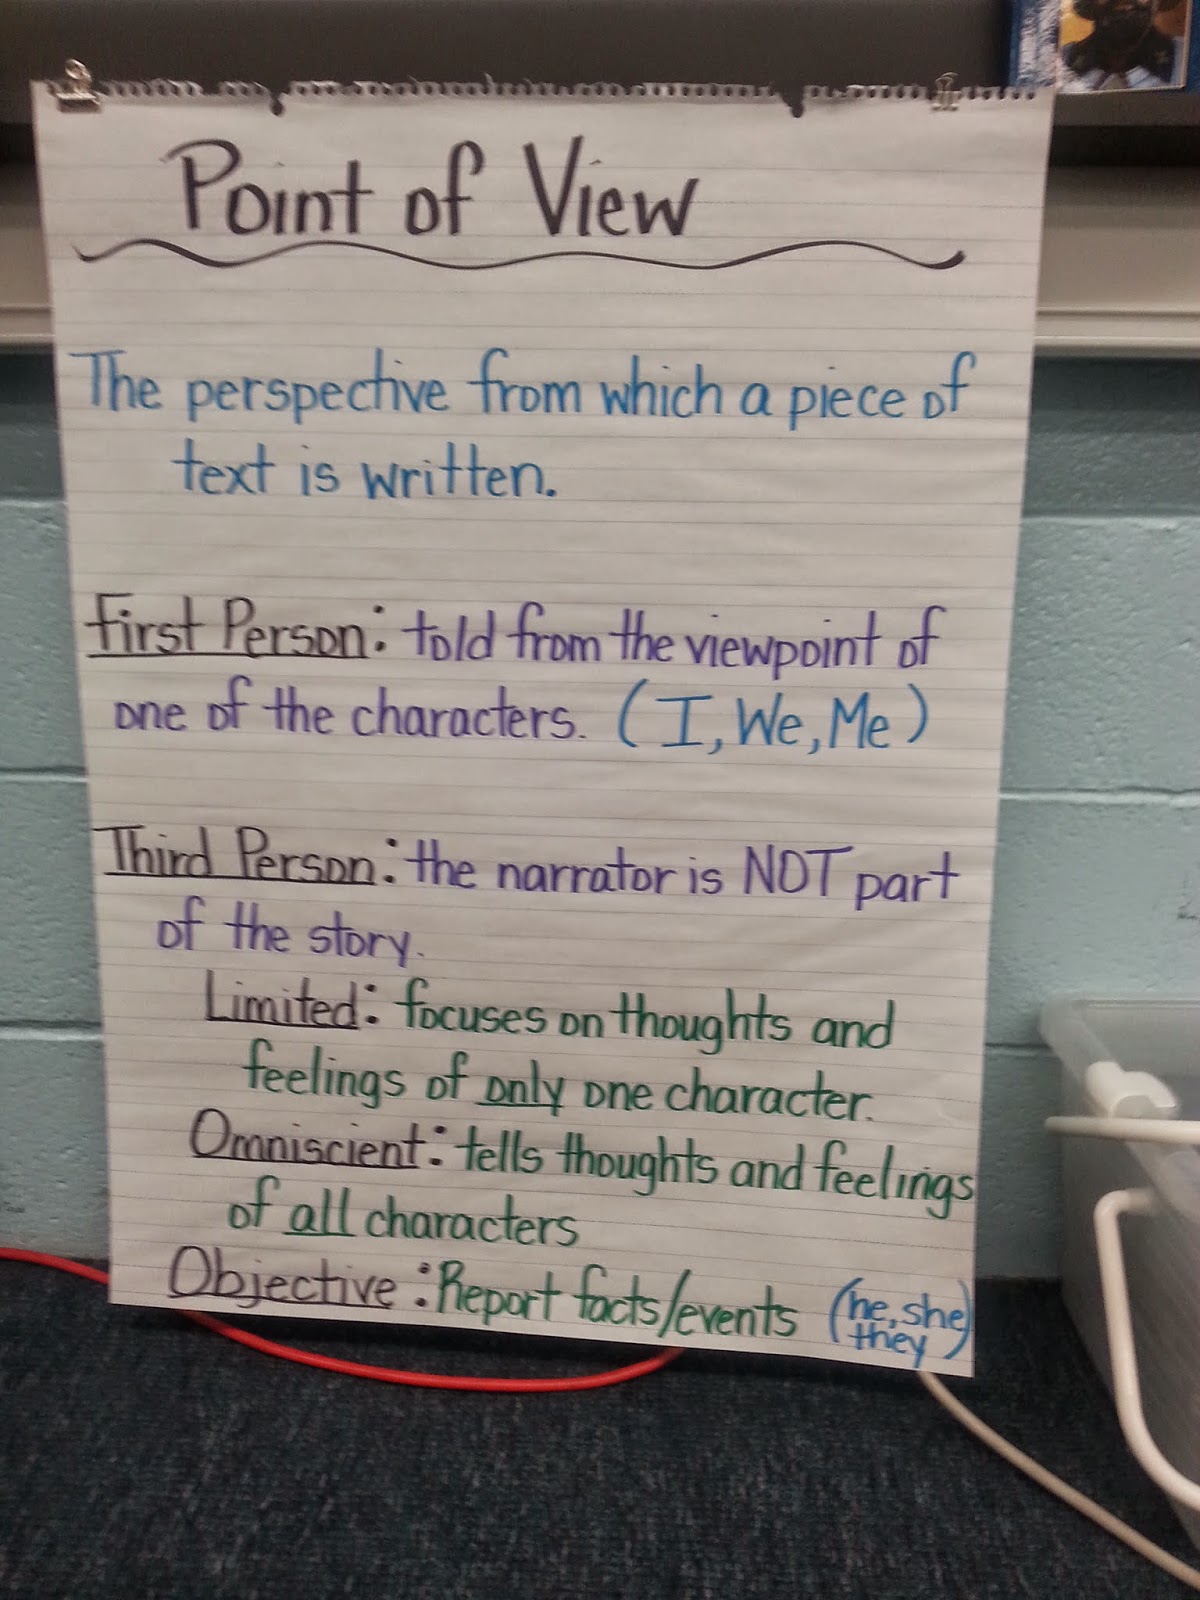 Point of View
The perspective from which a piece of
text is written.
First Person: told from the viewpoint of
one of the characters. (I, We, Me)
Third Person: the narrator is NOT part
of the story.
Limited: focuses on thoughts and
feelings of only one character.
Omniscient: tells thoughts and feelings
of all characters
Objective: Report facts/events (he, she
they)